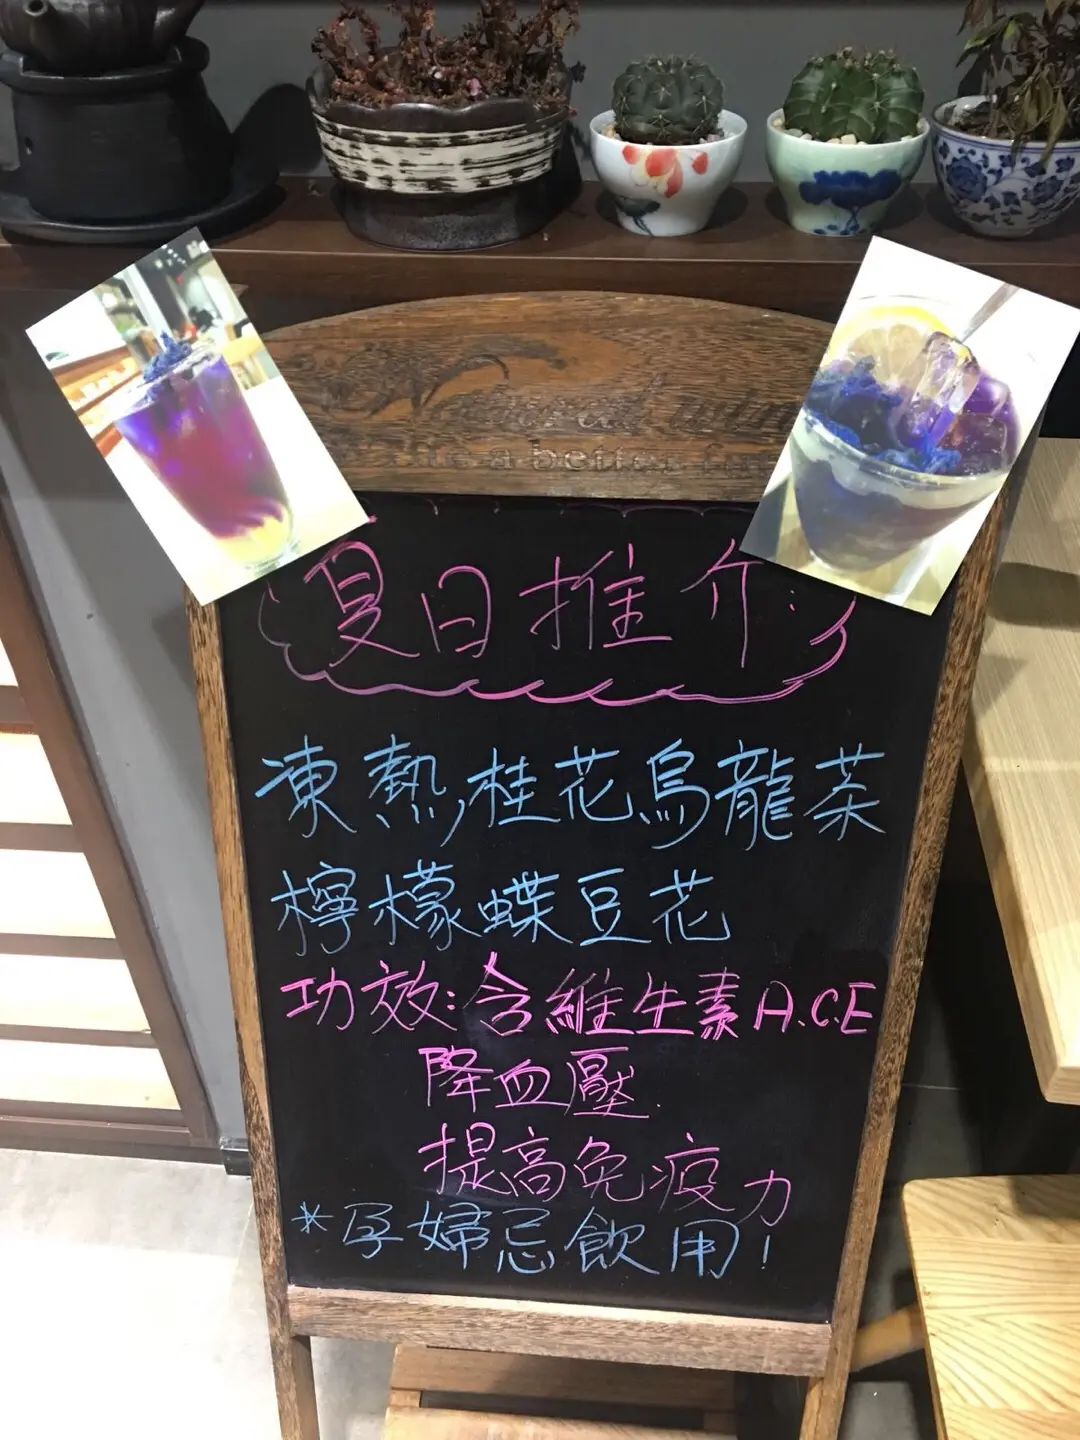 a better
夏日推介:
凍熱桂花烏龍茶
檸檬蝶豆花
功效:含維生素A.C.E
降血壓
提高免疫力
*孕婦忌飲用!